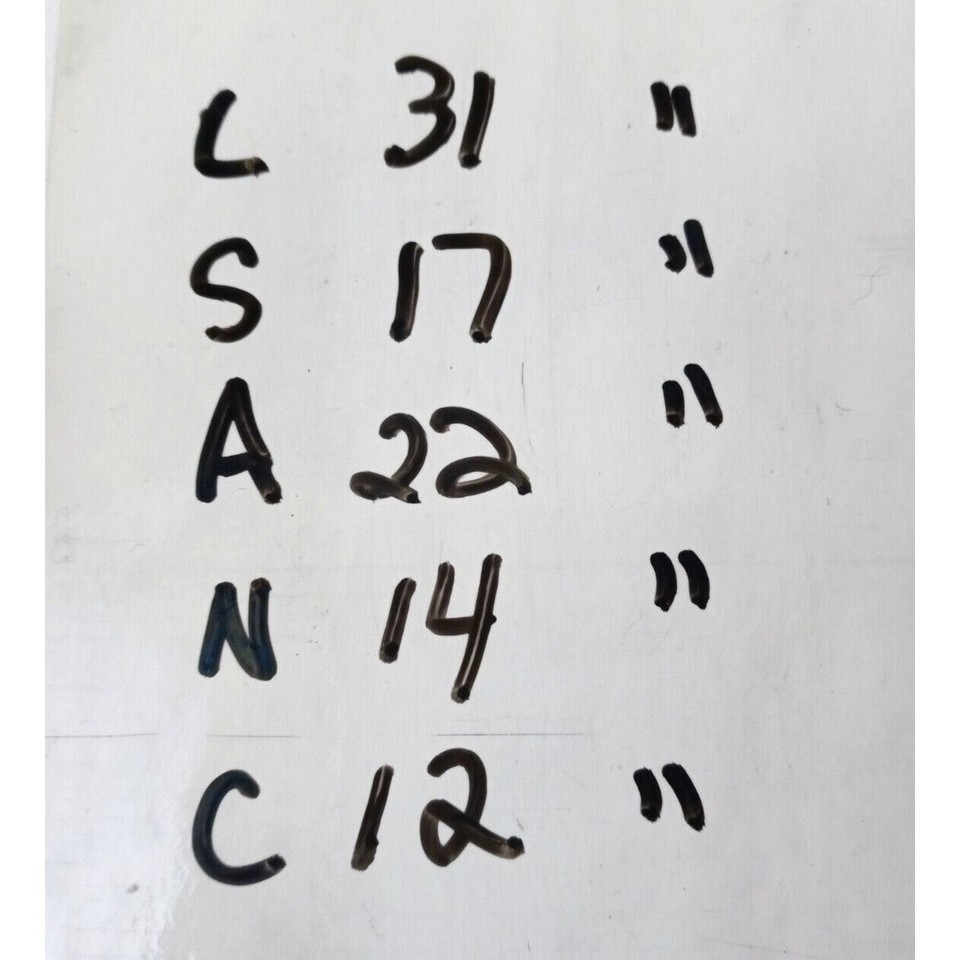 L 31 "
S 17 "
A 22 "
N 14 "
C 12 "